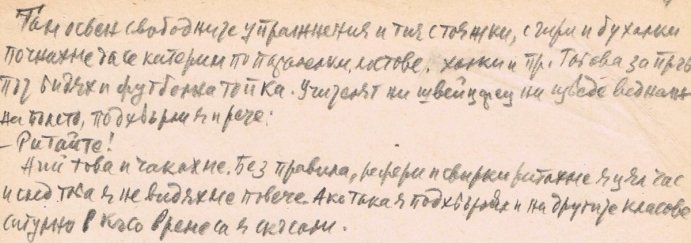 Там освен свободните упражнения и тия стояжки, с гири и бухалки
почнахме да се катерим по паралелки, лостове, халки и пр. Тогава за пръв
път видях и футболна топка. Учителят ни швейцарец ни изведе веднъж
на полето, подхвърли я и рече:
– Ритайте!
Ний това и чакахме. Без правила, рефери и свирки ритахме я цял час
и след това я не видяхме повече. Ако така я подхвърлял и на другите класове
сигурно в късо време са я скъсали.